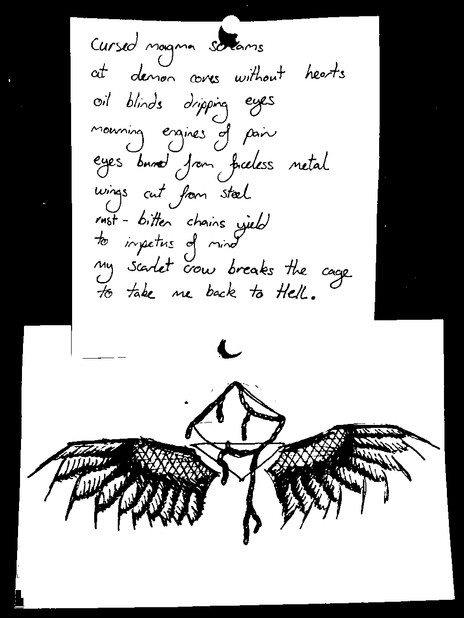 Cursed magma screams
at demon cores without hearts
oil blinds dripping eyes
mourning engines of pain
eyes burned from faceless metal
wings cut from steel
rust-bitten chains yield
to impetus of mind
my scarlet crow breaks the cage
to take me back to Hell.